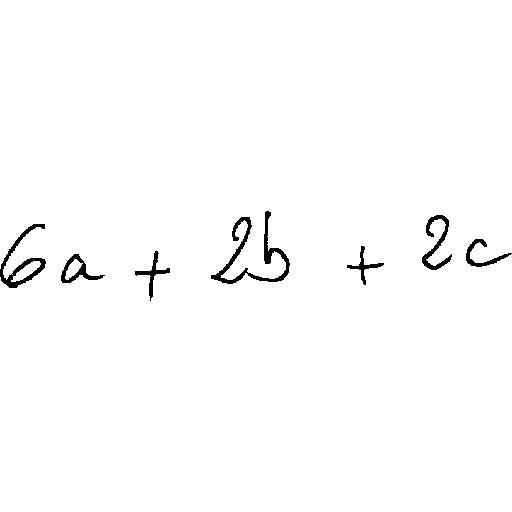 6a + 2b + 2c